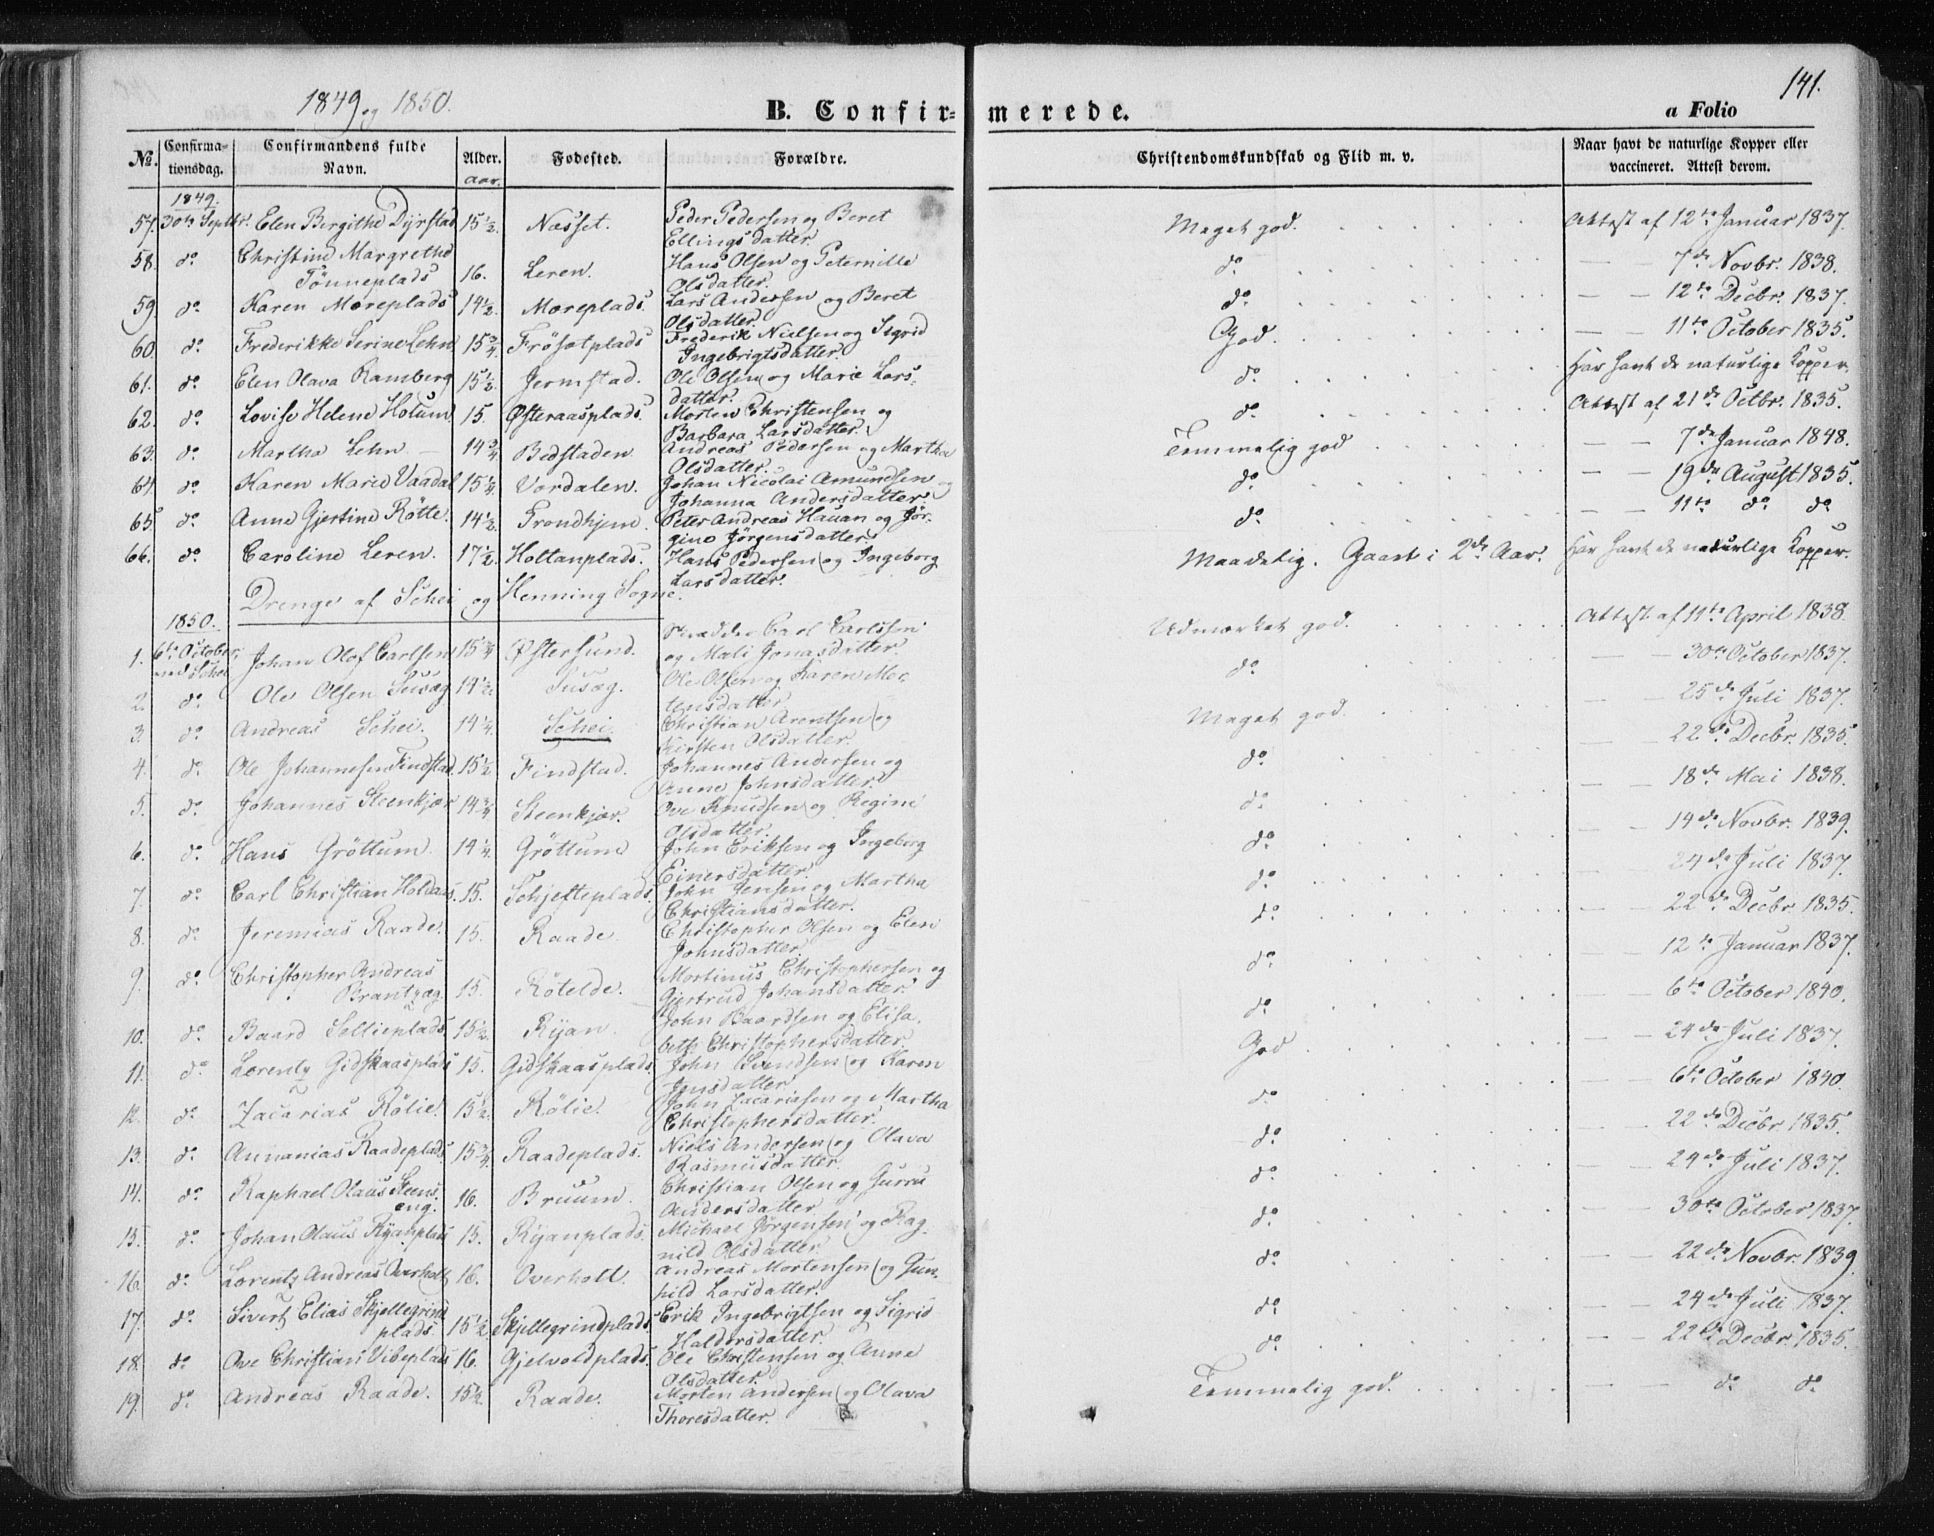 1849 og 1850.
B. Confirmerede.
a Folio
141.
No.
Confirmationsdag.
Confirmandens fulde Navn.
Alder.
aar.
Fødested.
Forældre.
Christendomskundskab og Flid m. v.
Naar havt de naturlige Kopper eller vaccineret. Attest derom.
1849.
57. 30te Septbr. Elen Bergithe Dÿrstad 15 1/2. Næsset. Peder Pedersen og Beret Ellingsdatter. Meget god. Attest af 12te Januar 1837.
58. do Christine Margrethe Tönneplads 16. Leren. Hans Olsen og Peternille Olsdatter. do — — 7de Novbr. 1838.
59. do Karen Mæreplads 14 1/2. Mæreplads. Lars Andersen og Beret Olsdatter. do — — 12te Decbr. 1837.
60. do Frederikke Serine Lehn 15 3/4. Frösetplads Frederik Nielsen og Sigrid Ingebrigtsdatter. God. — — 11te October 1835.
61. do Elen Olava Ramberg 15 1/2. Jermstad. Ole Olsen og Marie Larsdatter. do Har havt de naturlige Kopper.
62. do Lovise Helene Holum 15. Østeraasplads. Morten Christensen og Barbara Larsdatter. do Attest af 21de Octbr. 1835.
63. do Martha Lehn 14 3/4 Bedstaden. Andreas Pedersen og Martha Olsdatter. Temmelig god — — 7de Januar 1848.
64. do Karen Marie Vaadal 15 1/4 Vordalen. Johan Nicolai Amundsen og Johanna Andersdatter. do — — 19de August 1835.
65. do Anne Gjertine Rötte. 14 1/2. Trondhjem. Peter Andreas Hauan og Jörgine Jörgensdatter. do — — 11te do do
66. do Caroline Leren. 17 1/2. Holtanplads. Hans Pedersen og Ingeborg Larsdatter. Maadelig. Gaaet i 2de Aar. Har havt de naturlige Kopper.
Drenge af Schei og Henning Sogne.
1850.
1. 6te October ved Schei Johan Olof Carlsen 15 3/4 Østersund. Skrædder Carl Carlsen og Mæli Jonasdatter Udmærket god. Attest af 11te April 1838.
2. do Ole Olsen Susæg 14 1/2. Susæg. Ole Olsen og Karen Mortensdatter. do — — 30te October 1837.
3. do Andreas Schei. 14 1/4. Schei Christian Arentsen og Kirsten Olsdatter. Meget god. — — 25de Juli 1837.
4. do Ole Johannesen Findstad 15 1/2 Findstad. Johannes Andersen og Anne Johnsdatter. do — — 22de Decbr. 1835.
5. do Johannes Steenkjær 14 3/4 Steenkjær. Ove Knudsen og Regine Olsdatter. do — — 18de Mai 1838.
6. do Hans Gröttum. 14 1/4. Gröttum John Eriksen og Ingeborg Einersdatter. do — — 14de Novbr. 1839.
7. do Carl Christian Holdaas. 15. Schjetteplads. John Jensen og Martha Christiansdatter. do — — 24de Juli 1837.
8. do Jeremias Raade. 15. Raade. Christopher Olsen og Elen Johnsdatter do — — 22de Decbr 1835.
9. do Christopher Andreas Brantzæg. 15. Rötelde. Mortinus Christophersen og Gjertrud Johansdatter. do — — 12te Januar 1837.
10. do Baard Sellieplads 15 1/2. Rÿan John Baardsen og Elisabeth Christophersdatter. do — — 6te October 1840.
11. do Lorentz Gidskaasplads 15. Gidskaasplads. John Svendsen og Karen Jensdatter God — — 24de Juli 1837.
12. do Zacarias Rölie. 15 1/2. Rölie. John Zacariasen og Martha Christophersdatter. do — — 6te October 1840.
13. do Annanias Raadeplads 15 3/4. Raadeplads. Niels Andersen og Olava Rasmusdatter. do — — 22de Decbr 1835.
14. do Raphael Olaus Steenseng. 16. Bruum. Christian Olsen og Gurru Andersdatter do — — 24de Juli 1837.
15. do Johan Olaus Rÿanplads 15. Rÿanplads. Michael Jörgensen og Ragnild Olsdatter. do — — 30te October 1837.
16. do Lorentz Andreas Overholt 16. Overholt. Andreas Mortensen og Gunhild Larsdatter. do — — 22de Novbr. 1839.
17. do Sivert Elias Skjellegrindplads. 15 1/2 Skjellegrindplads. Erik Ingebrigtsen og Sigrid Haldorsdatter do — — 24de Juli 1837.
18. do Ove Christian Vibeplads 16. Gjelvoldplads. Ole Christensen og Anne Olsdatter. do — — 22de Decbr 1835.
19. do Andreas Raade. 15 1/2. Raade. Morten Andersen og Olava Thoresdatter. Temmelig god. — — do do